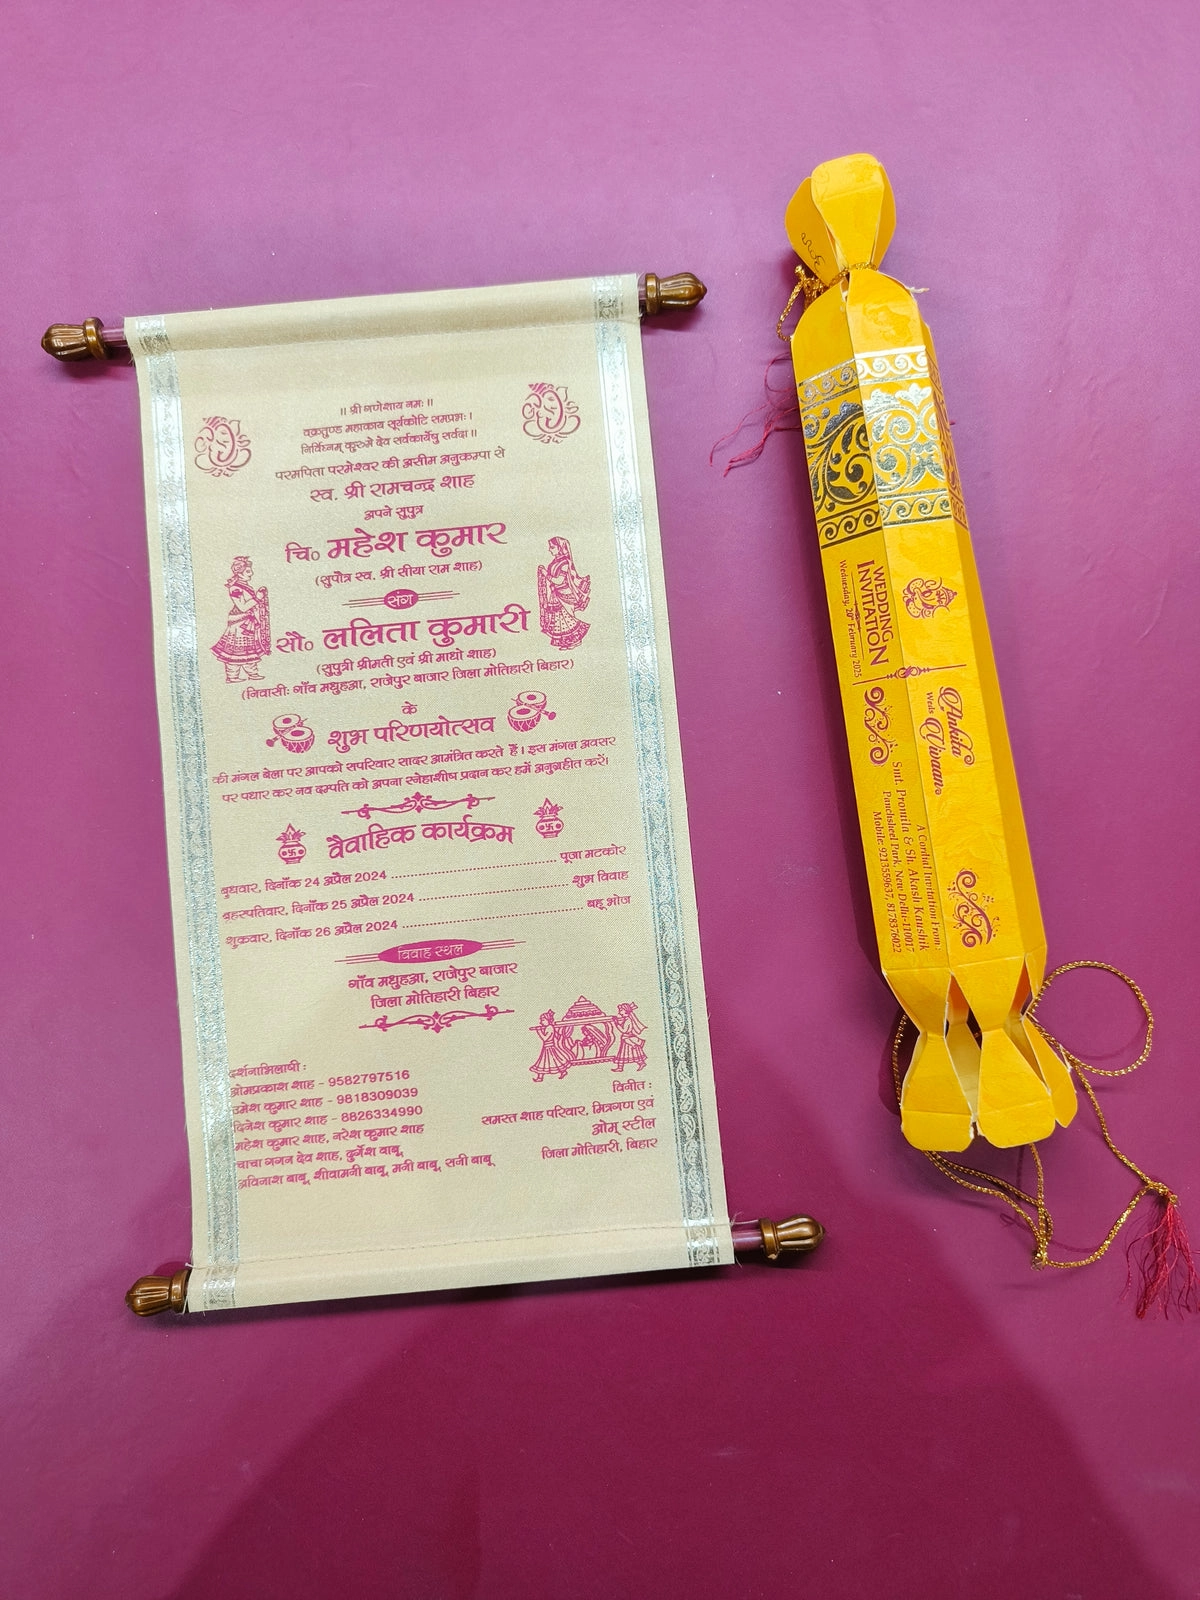 ॥ श्री गणेशाय नमः ॥
वक्रतुण्ड महाकाय सूर्यकोटि समप्रभः।
निर्विघ्नम् कुरुमे देव सर्वकार्येषु सर्वदा॥
परमपिता परमेश्वर की असीम अनुकम्पा से
स्व. श्री रामचन्द्र शाह
अपने सुपुत्र
चि० महेश कुमार
(सुपौत्र स्व. श्री सीया राम शाह)
संग
सौ० ललिता कुमारी
(सुपुत्री श्रीमती एवं श्री माधो शाह)
(निवासीः गाँव मधुहआ, राजेपुर बाजार जिला मोतिहारी बिहार)
के
शुभ परिणयोत्सव
की मंगल बेला पर आपको सपरिवार सादर आमंत्रित करते हैं। इस मंगल अवसर
पर पधार कर नव दम्पति को अपना स्नेहाशीष प्रदान कर हमें अनुग्रहीत करें।
वैवाहिक कार्यक्रम
बुधवार, दिनाँक 24 अप्रैल 2024 ........ पूजा मटकोर
बृहस्पतिवार, दिनाँक 25 अप्रैल 2024 ........ शुभ विवाह
शुक्रवार, दिनाँक 26 अप्रैल 2024 ........ बहू भोज
विवाह स्थल
गाँव मधुहआ, राजेपुर बाजार
जिला मोतिहारी बिहार
दर्शनाभिलाषी :
ओमप्रकाश शाह - 9582797516
उमेश कुमार शाह - 9818309039
दिनेश कुमार शाह - 8826334990
महेश कुमार शाह, नरेश कुमार शाह
चाचा गगन देव शाह, दुर्गेश बाबू
अविनाश बाबू, शीवामनी बाबू, मनी बाबू, सनी बाबू
विनीत :
समस्त शाह परिवार, मित्रगण एवं
ओम् स्टील
जिला मोतिहारी, बिहार
WEDDING
INVITATION
Wednesday, 20th February 2025
Ankita
Weds Vivaan
A Cordial Invitation From :
Smt. Promila & Sh. Akash Kaushik
Panchsheel Park, New Delhi-110017
Mobile: 9213559637, 8178376022